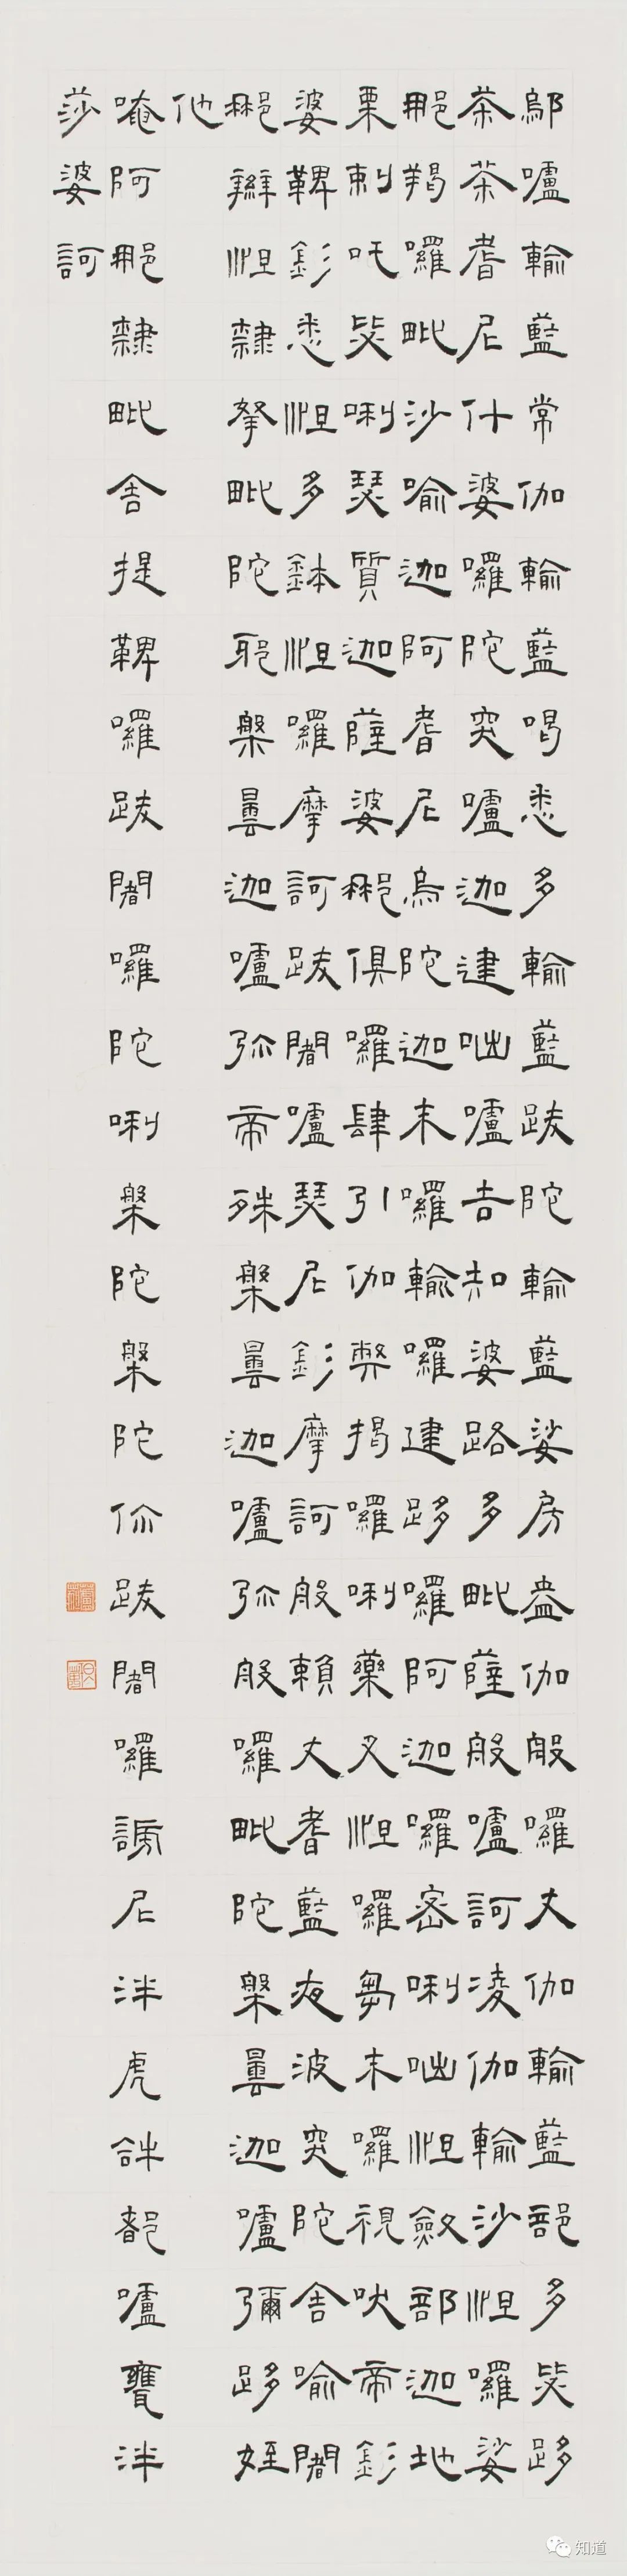 鄔嚧輸藍常伽輸藍喝悉多輸藍跋陀輸藍娑房盎伽般囉丈伽輸藍部多毖跢
茶茶耆尼什婆囉陀突嚧迦建咄嚧吉知婆路多毗薩般嚧訶凌伽輸沙怛囉娑
那羯囉毗沙喻迦阿耆尼烏陀迦末囉輸囉建跢囉阿迦囉密唎咄怛斂部迦地
栗剌吒毖唎瑟質迦薩婆那俱囉肆引伽弊揭囉唎藥叉怛囉芻末囉視吠帝釤
婆鞞釤悉怛多鉢怛囉摩訶跋闍嚧瑟尼釤摩訶般賴丈耆藍夜波突陀舍喻闍
那辮怛隸拏毗陀耶槃曇迦嚧弥帝殊槃曇迦嚧弥般囉毗陀槃曇迦嚧彌跢姪
他
唵阿那隸毗舍提鞞囉跋闍囉陀唎槃陀槃陀你跋闍囉謗尼泮虎𤙖都嚧甕泮
莎婆訶
知道